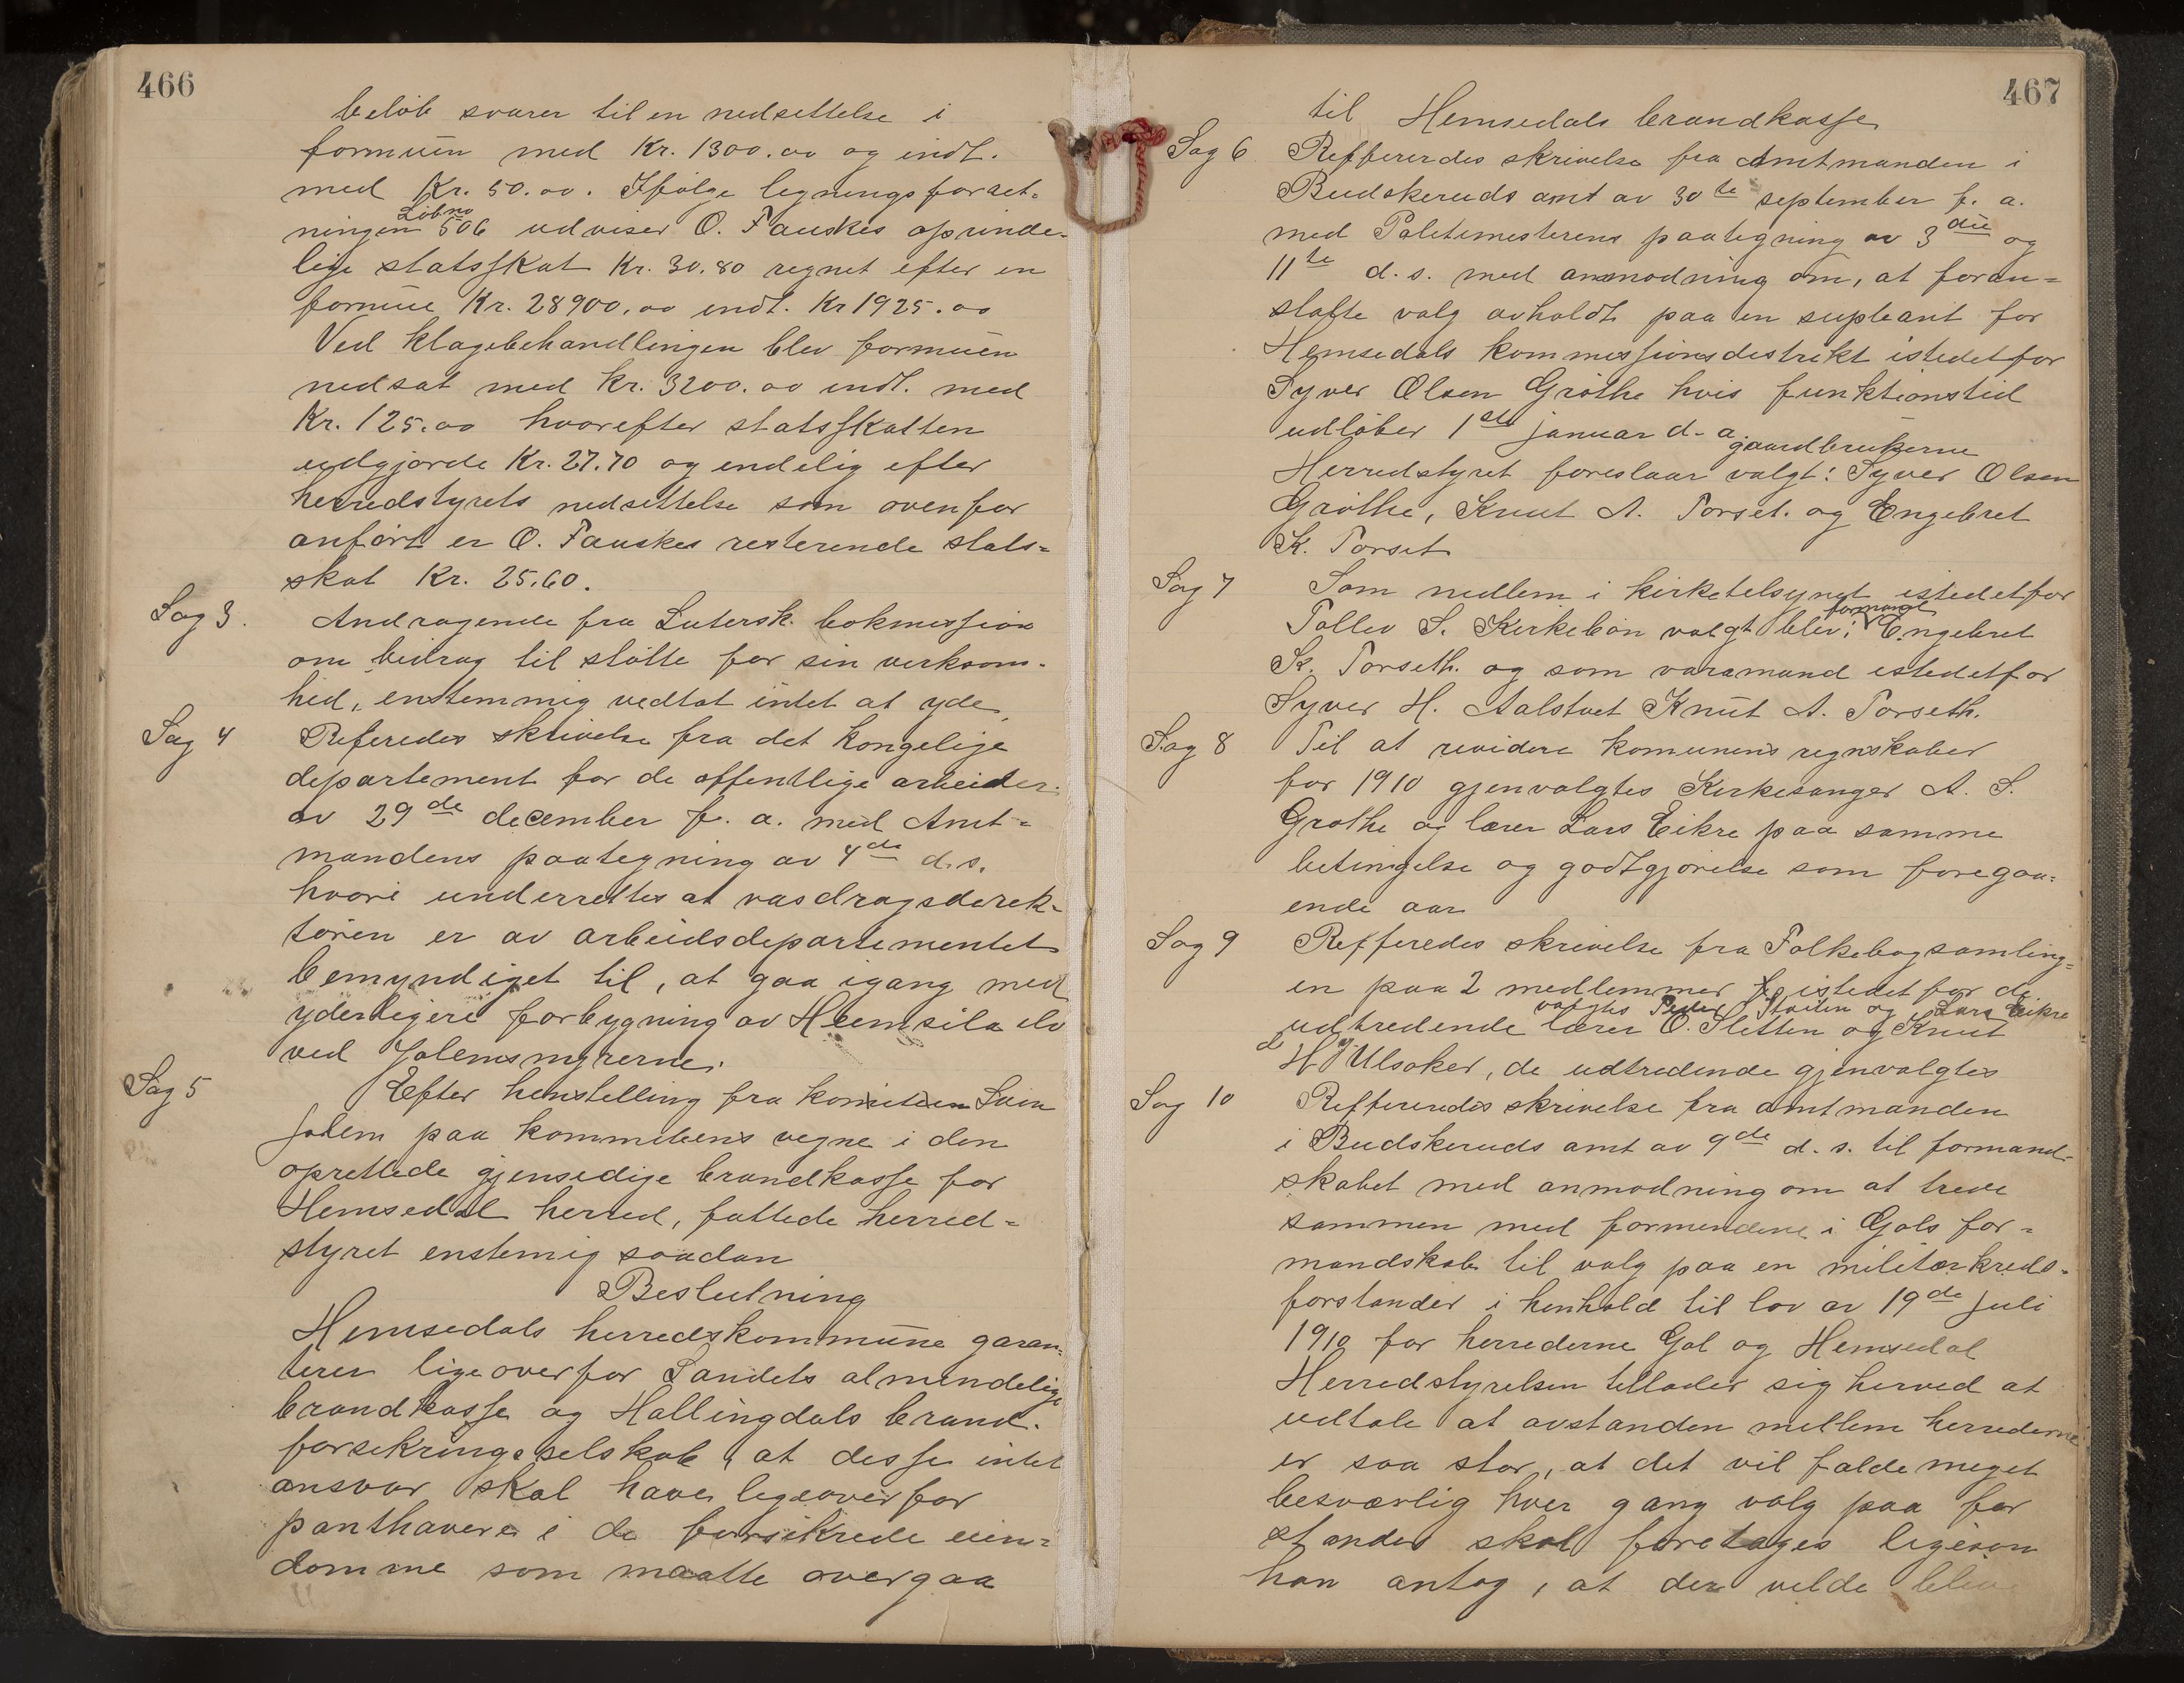 466
beløb svarer til en nedsettelse i
formuen med Kr. 1300.00 og indt.
med Kr. 50.00. Ifølge ligningsforret-
Løbno
ningen 506 udviser O. Fauskes oprinde-
lige statsskat Kr. 30.80 regnet efter en
formue Kr. 28900.00 indt. Kr 1925.00
Ved klagebehandlingen blev formuen
nedsat med kr. 3200.00 indt. med
Kr. 125.00 hvorefter statsskatten
udgjorde Kr. 27.70 og endelig efter
herredstyrets nedsettelse som ovenfor
anført er O. Fauskes resterende stats-
skat Kr. 25.60.
Sag 3. Andragende fra Lutersk. bokmission
om bidrag til støtte for sin verksom-
hed, enstemmig vedtat intet at yde,
Sag 4 Referedes skrivelse fra det kongelige
departement for de offentlige arbeider
av 29de december f. a. med Amt-
mandens paategning av 4de d.s.
hvori underrettes at vasdragsderek-
tøren er av arbeidsdepartementet
bemyndiget til, at gaa igang med
yderligere forbygning av Heemsila elv
ved Jolemsmyrerne.
Sag 5 Efter henstelling fra komiteen Svein
Jolem paa kommiteens vegne i den
oprettede gjensedige brandkasse for
Hemsedal herred, fattede herred-
styret enstemig saadan
Beslutning
Hemsedals herredskommune garan-
terer ligeoverfor Landets almindelige
brandkasse og Hallingdals brand-
forsekringsselskab, at desse intet
ansvar skal have ligeoverfor
panthavere i de forsikrede eien-
domme som maatte overgaa
467
til Hemsedals brandkasse
Sag 6 Reffererdes skrivelse fra Amtmanden i
Budskeruds amt av 30te september f. a.
med Politimesterens paategning av 3die og
11te d.s. med anmodning om, at foran-
stalte valg avholdt paa en supleant for
Hemsedals kommissionsdestrikt istedetfor
Syver Olsen Grøthe hvis funktionstid
udløber 1ste januar d. a.
gaardbrukerne
Herredstyret foreslaar valgt: Syver Olsen
Grøthe, Knut A. Torset. og Engebret
K. Torset
Sag 7 Som medlem i kirketelsynet istedetfor
formand
Tollev S. Kirkebøn valgt blev: Engebret
K. Torseth. og som varamand istedetfor
Syver H. Aalstvet Knut A. Torseth.
Sag 8 Til at revidere komunens regnskaber
for 1910 gjenvalgtes Kirkesanger A. S.
Grøthe og lærer Lars Eikre paa samme
betingelse og godtgjørelse som foregaa-
ende aar
Sag 9 Refferedes skrivelse fra Folkebogsamling-
en paa 2 medlemmer istedet for de
valgtes Peder Støiten og Lars Eikre
udtredende lærer O. Sletten og Knut
H. Ulsaker, de udtredende gjenvalgtes
Sag 10 Reffereredes skrivelse fra amtmanden
i Budskeruds amt av 9de d. s. til formand-
skabet med anmodning om at trede
sammen med formendene i Gols for-
mandskab til valg paa en militærkreds-
forstander i henhold til lov av 19de juli
1910 for herrederne Gol og Hemsedal
Herredstyrelsen tellader sig herved at
udtale at avstanden mellem herrederne
er saa stor, at det vil falde meget
besværlig hver gang valg paa for
stander skal foretages ligesom
han antog, at der vilde blive